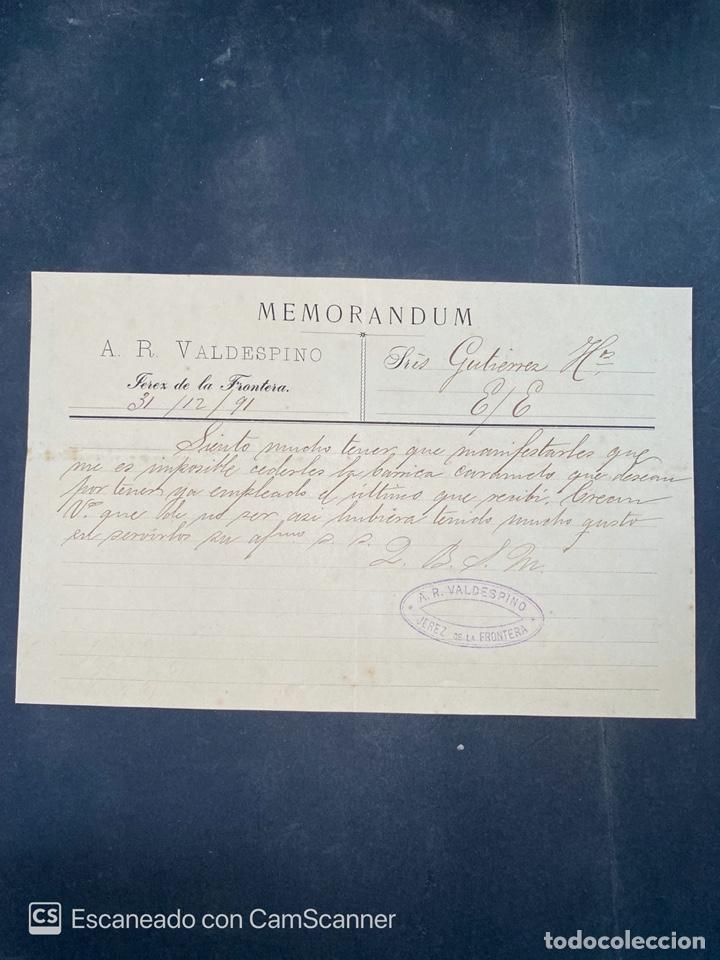 MEMORANDUM
A. R. VALDESPINO
Jerez de la Frontera.
31/12/91
Srẽs Gutierrez Hos
E/E
Siento mucho tener que manifestarles que
me es imposible cederles la barrica caramelo que desean
por tener ya empleado el último que recibí. Crean
Vs que de no ser asi hubiera tenido mucho gusto
en servirlos su afmo s. s.
Q. B. S. M.
A. R. VALDESPINO
JEREZ DE LA FRONTERA
CS Escaneado con CamScanner
todocoleccion